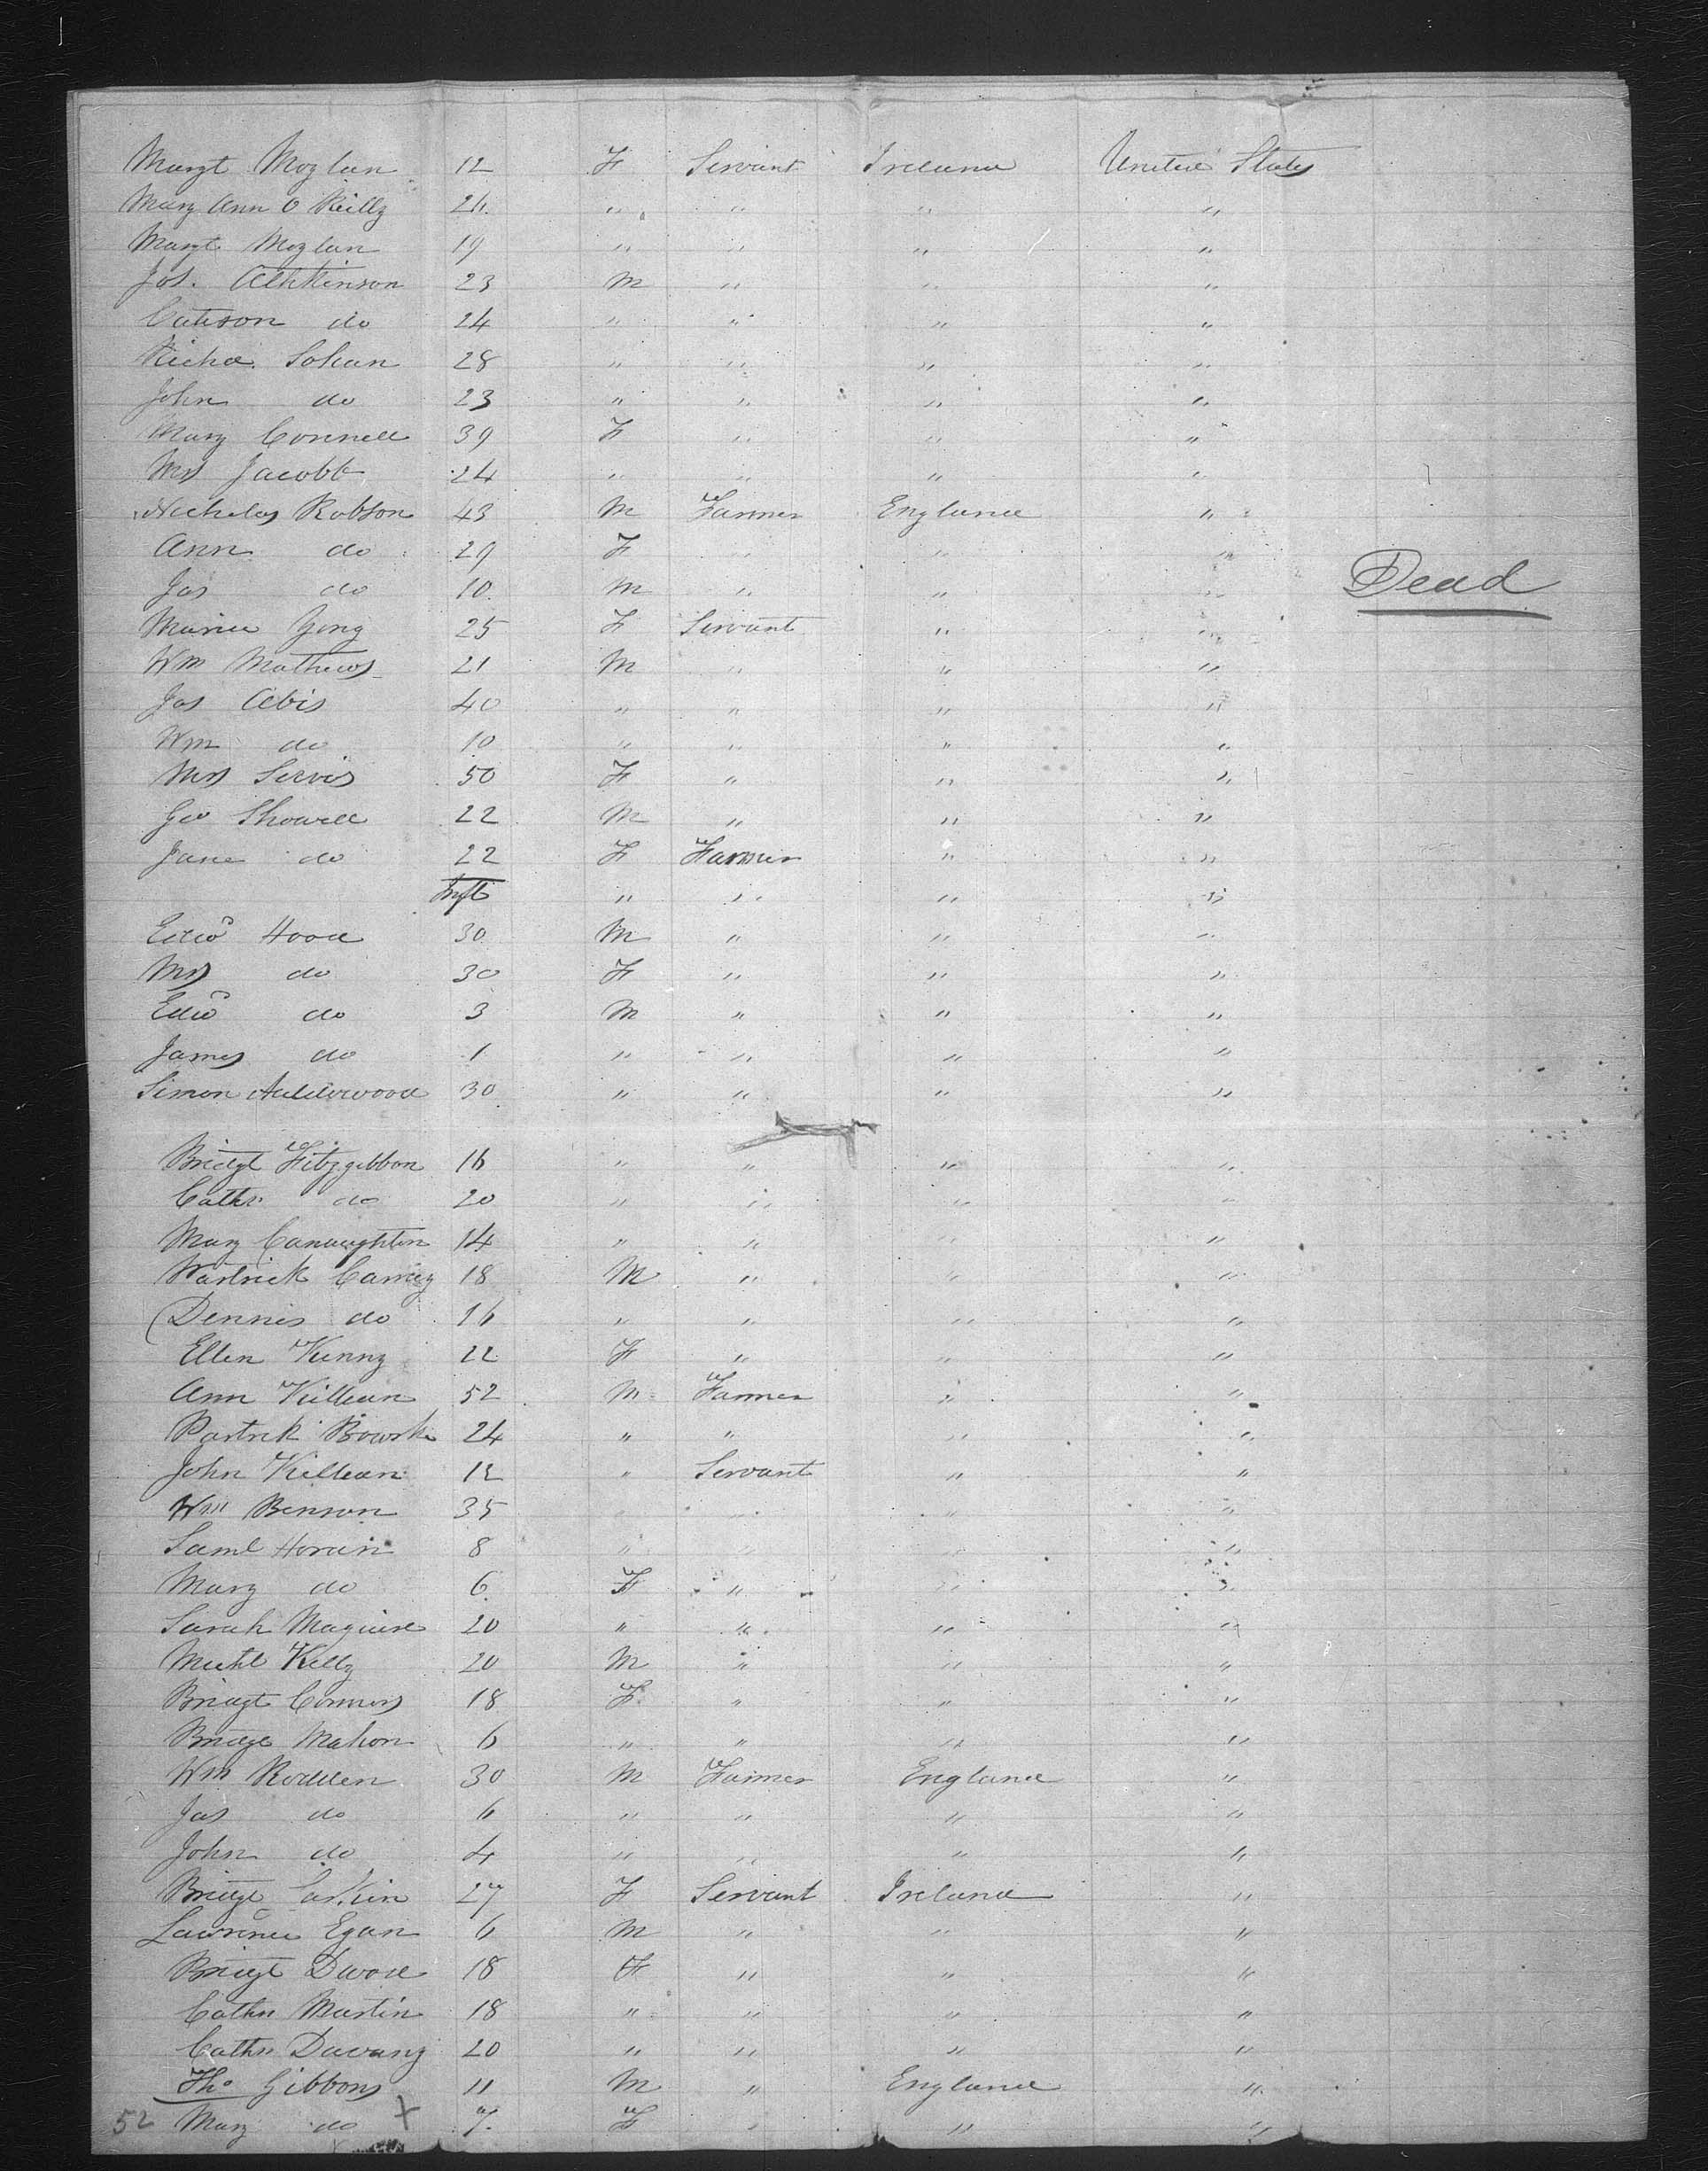 Margt Moylan 12 F Servant Ireland United States
Mary Ann O Reilly 24 " " " "
Margt Moylan 19 " " " "
Jos. Athkinson 23 M " " "
Cateson do 24 " " " "
Richd. Sohan 28 " " " "
John do 23 " " " "
Mary Connell 39 F " " "
Mrs Jacobb 24 " " " "
Nicholas Robson 43 M Farmer England "
Ann do 29 F " " "
Jas do 10 M " " " Dead
Maria Gong 25 F Servant " "
Wm Mathews 21 M " " "
Jas Abis 40 " " " "
Wm do 10 " " " "
Mrs Servis 50 F " " "
Geo Showell 22 M " " "
Jane do 22 F Farmer " "
Inft " " " "
Edwd Hood 30 M " " "
Mrs do 30 F " " "
Edwd do 3 M " " "
James do 1 " " " "
Simon 30 " " " "
Bridgt Fitzgibbon 16 " " " "
Cathn do 20 " " " "
Mary Canaughton 14 " " " "
Partrick Carney 18 M " " "
Dennis do 16 " " " "
Ellen Kenny 22 F " " "
Ann Killean 52 M Farmer " "
Partrek Bowrke 24 " " " "
John Killean 12 " Servant " "
Wm Benson 35 " " "
Saml Horain 8 " " " "
Mary do 6 F " " "
Sarah Maguire 20 " " " "
Michl Kelly 20 M " " "
Bridgt Connors 18 F " " "
Bridge Mahon 6 " " " "
Wm Rodden 30 M Farmer England "
Jas do 6 " " " "
John do 4 " " " "
Bridge Larkin 27 F Servant Ireland "
Lawrence Egan 6 M " " "
Bridgt 18 F " " "
Cathn Martin 18 " " " "
Cathn Davany 20 " " " "
Tho Gibbons 11 M " England "
52 Mary do X 7 F " " "